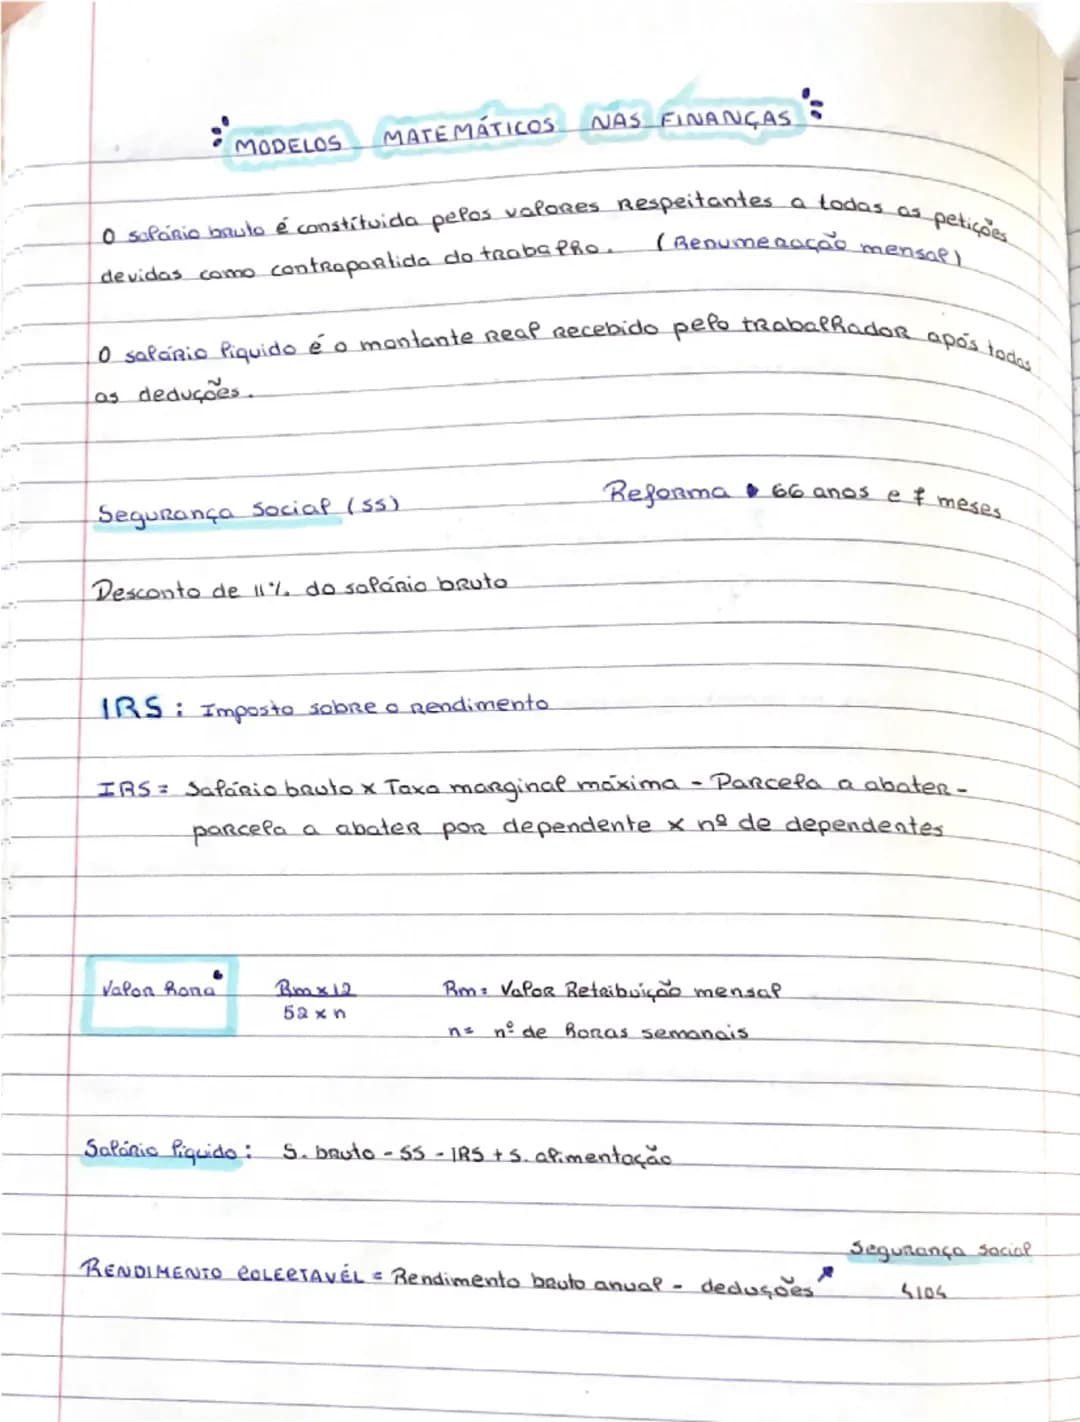 MODELOS MATEMÁTICOS NAS FINANÇAS
O salário bruto é constítuida pelos valores respeitantes a todas as petições
devidas como contrapartida do trabalho. (Renumeração mensal)
O salário líquido é o montante real recebido pelo trabalhador após todas
as deduções.
Segurança Social (SS)
Reforma 66 anos e 7 meses
Desconto de 11% do salário bruto
IRS: Imposto sobre o rendimento
IRS = Salário bruto x Taxa marginal máxima - Parcela a abater -
parcela a abater por dependente x nº de dependentes
Valor hora
Rm x 12
52 x n
Rm = Valor Retribuição mensal
n = nº de horas semanais
Salário líquido: S. bruto - SS - IRS + S. alimentação
Segurança social
RENDIMENTO COLECTAVÉL = Rendimento bruto anual - deduções
4104